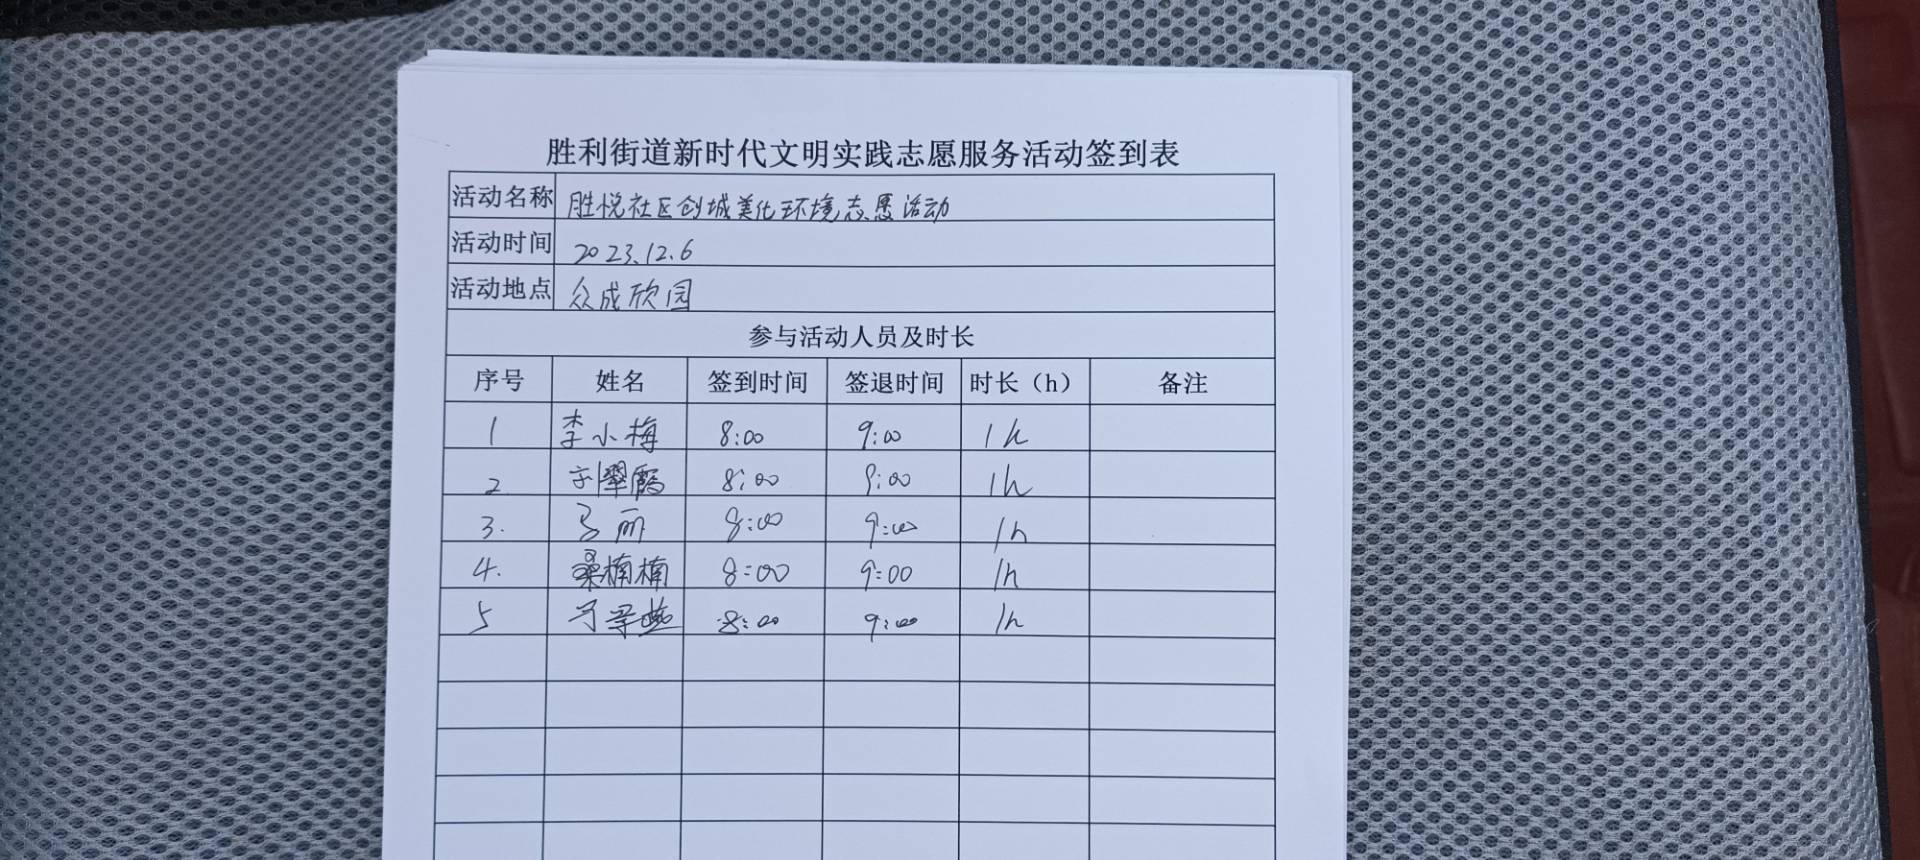 胜利街道新时代文明实践志愿服务活动签到表
活动名称 胜悦社区创城美化环境志愿活动
活动时间 2023.12.6
活动地点 众成欣园
参与活动人员及时长
序号 姓名 签到时间 签退时间 时长（h） 备注
1 李小梅 8:00 9:00 1h
2 8:00 9:00 1h
3. 马丽 8:00 9:00 1h
4. 桑楠楠 8:00 9:00 1h
5 8:00 9:00 1h